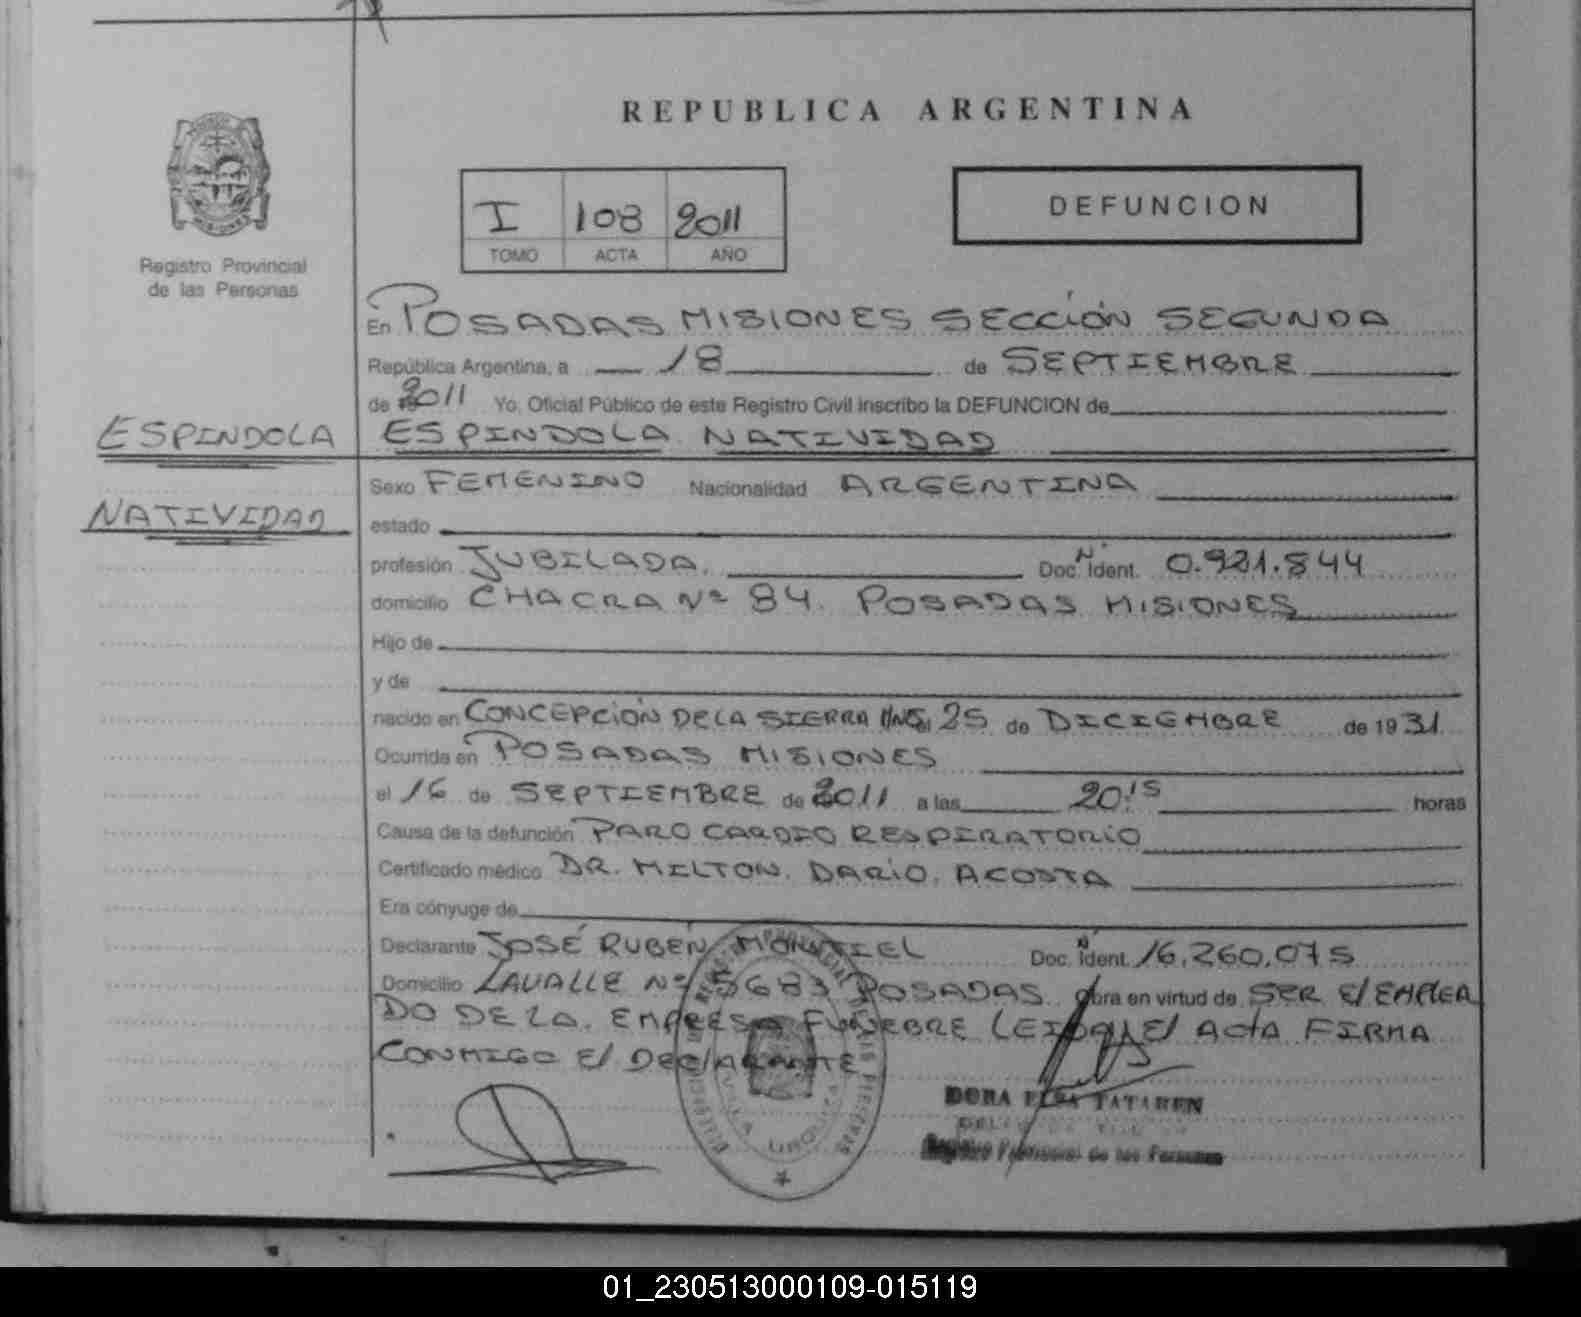 REPUBLICA ARGENTINA
I 108 2011
TOMO ACTA AÑO
DEFUNCION
Registro Provincial
de las Personas
En POSADAS MISIONES SECCIÓN SEGUNDA
República Argentina, a 18 de SEPTIEMBRE
de 2011 Yo, Oficial Público de este Registro Civil inscribo la DEFUNCION de
ESPINDOLA
ESPINDOLA NATIVIDAD
NATIVIDAD
Sexo FEMENINO Nacionalidad ARGENTINA
estado
profesión JUBILADA. Doc. Ident. Nº 0.921.844
domicilio CHACRA Nº 84. POSADAS MISIONES
Hijo de
y de
nacido en CONCEPCIÓN DE LA SIERRA MNS el 25 de DICIEMBRE de 1931
Ocurrida en POSADAS MISIONES
el 16 de SEPTIEMBRE de 2011 a las 20:15 horas
Causa de la defunción PARO CARDIO RESPIRATORIO
Certificado médico DR. MILTON. DARIO. ACOSTA
Era cónyuge de
Declarante JOSÉ RUBÉN MONTIEL Doc. Ident. Nº 16.260.075
Domicilio LAVALLE Nº 5683 POSADAS Obra en virtud de SER El EMPLEA
DO DE LA. EMPRESA FUNEBRE LEIDA El ActA FIRMA
CONMIGO El DEClARANTE
DORA ELSA TATAREN
Registro Provincial de las Personas
VILLA URQUIZA
01_230513000109-015119